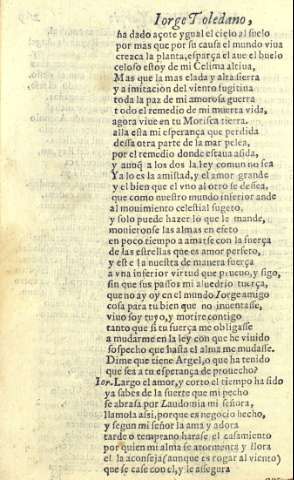 Iorge Toledano,
ha dado açote ygual el cielo al suelo
por mas que por su causa el mundo viua
crezca la planta, esparça el aue el buelo
celoso estoy de mi Celima altiua,
Mas que la mas elada y alta sierra
y a imitacion del viento fugitiua
toda la paz de mi amorosa guerra
todo el remedio de mi muerta vida,
agora viue en tu Morisca tierra.
alla esta mi esperança que perdida
dessa otra parte de la mar pelea,
por el remedio donde estaua asida,
y aunq̃ a los dos la ley comun no sea
Ya lo es la amistad, y el amor grande
y el bien que el vno al otro se dessea,
que como nuestro mundo inferior ande
al mouimiento celestial sugeto,
y solo puede hazer lo que le mande,
monieronse las almas en efeto
en poco tiempo a amarse con la fuerça
de las estrellas que es amor perfeto,
y este la nuestra de manera fuerça
a vna inferior virtud que prueuo, y sigo,
sin que sus passos mi aluedrio tuerça,
que no ay oy en el mundo Iorge amigo
cosa para tu bien que no intentasse,
viuo soy tuyo, y morire contigo
tanto que si tu fuerça me obligasse
a mudarme en la ley con que he viuido
sospecho que hasta el alma me mudasse.
Dime que tiene Argel, o que ha tenido
que sea a tu esperança de prouecho?
Ior. Largo el amor, y corto el tiempo ha sido
ya sabes de la suerte que mi pecho
se abrasa por Laudomia mi señora,
llamola assi, porque es negocio hecho,
y segun mi señor la ama y adora
tarde o temprano harase el casamiento
por quien mi alma se atormenta y llora
el la aconseja (aunque es rogar al viento)
que se case con el, y le assegura